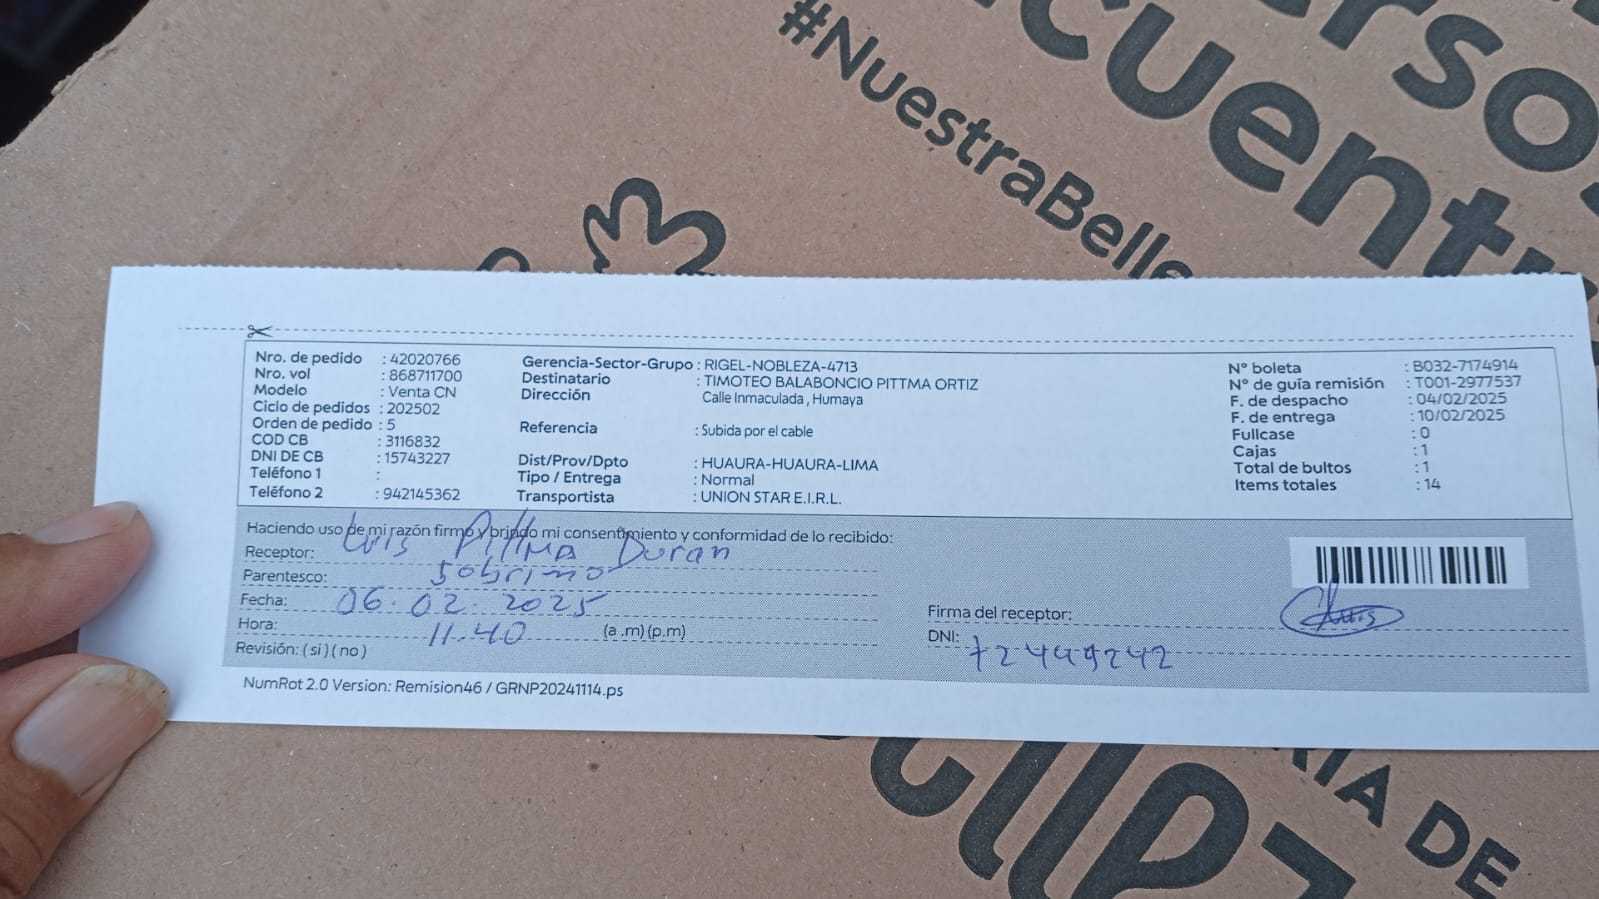 #NuestraBelle
cuent
Nro. de pedido : 42020766
Nro. vol : 868711700
Modelo : Venta CN
Ciclo de pedidos : 202502
Orden de pedido : 5
COD CB : 3116832
DNI DE CB : 15743227
Teléfono 1 :
Teléfono 2 : 942145362
Gerencia-Sector-Grupo : RIGEL-NOBLEZA-4713
Destinatario : TIMOTEO BALABONCIO PITTMA ORTIZ
Dirección Calle Inmaculada , Humaya
Referencia : Subida por el cable
Dist/Prov/Dpto : HUAURA-HUAURA-LIMA
Tipo / Entrega : Normal
Transportista : UNION STAR E.I.R.L.
N° boleta : B032-7174914
N° de guía remisión : T001-2977537
F. de despacho : 04/02/2025
F. de entrega : 10/02/2025
Fullcase : 0
Cajas : 1
Total de bultos : 1
Items totales : 14
Haciendo uso de mi razón firmo y brindo mi consentimiento y conformidad de lo recibido:
Receptor: Luis Pittma Duran
Parentesco: Sobrino
Fecha: 06.02.2025
Hora: 11.40 (a .m) (p.m)
Revisión: ( si ) ( no )
Firma del receptor:
DNI: 72449242
NumRot 2.0 Version: Remision46 / GRNP20241114.ps
RIA DE